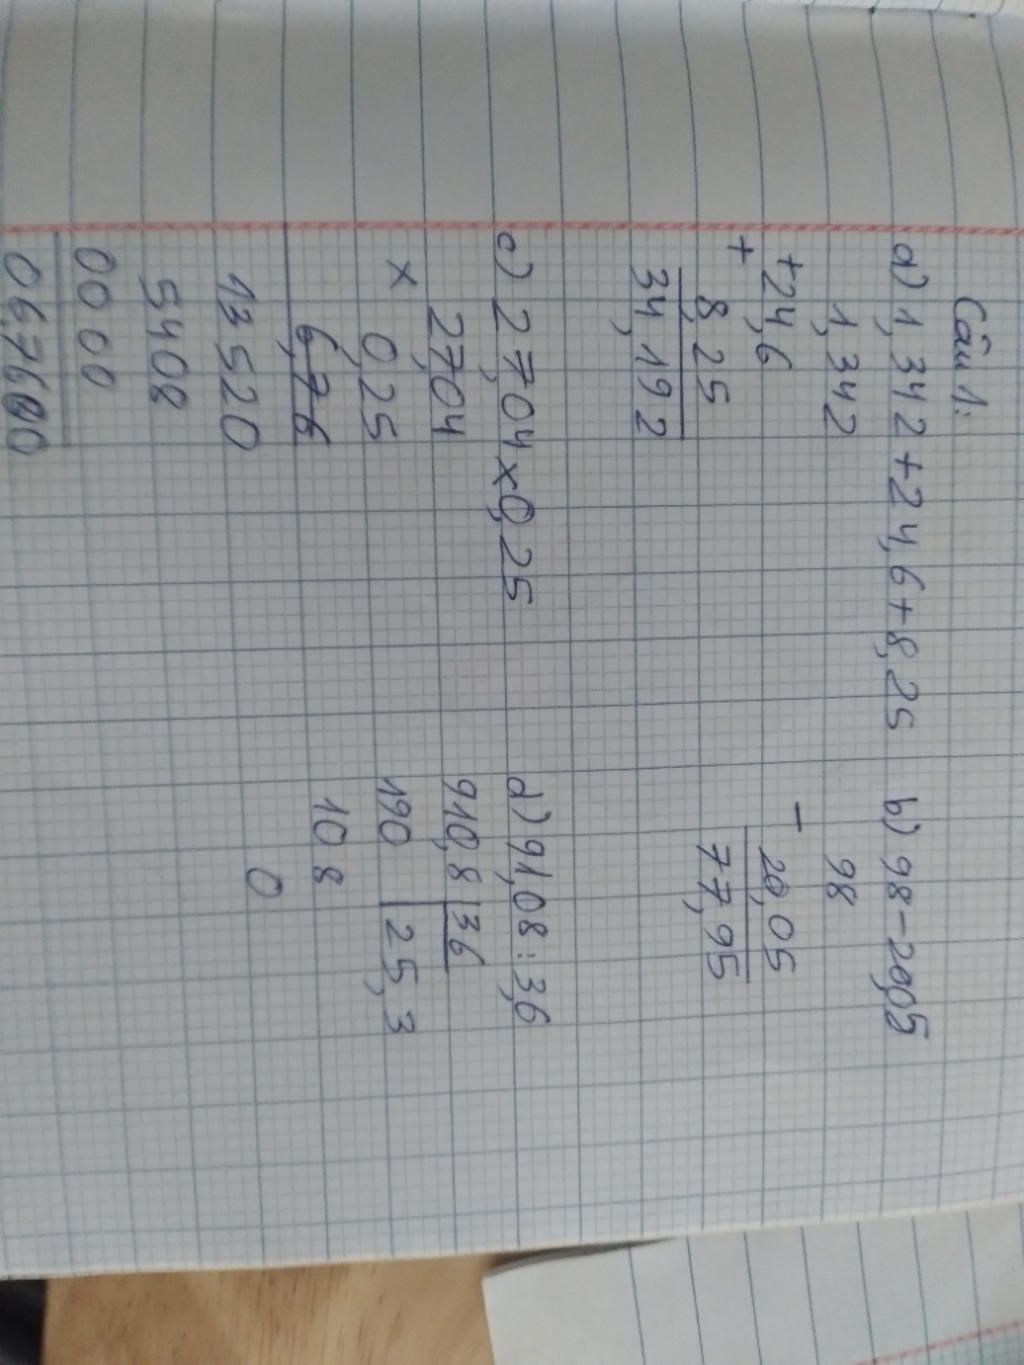 Câu 1:
a) 1,342 + 24,6 + 8,25 b) 98 - 20,05
1,342
+ 24,6
+ 8,25
34,192
98
- 20,05
77,95
c) 27,04 x 0,25 d) 91,08 : 3,6
27,04
x 0,25
6,76
13520
5408
0000
06,7600
910,8 | 36
190 | 25,3
10 8
0